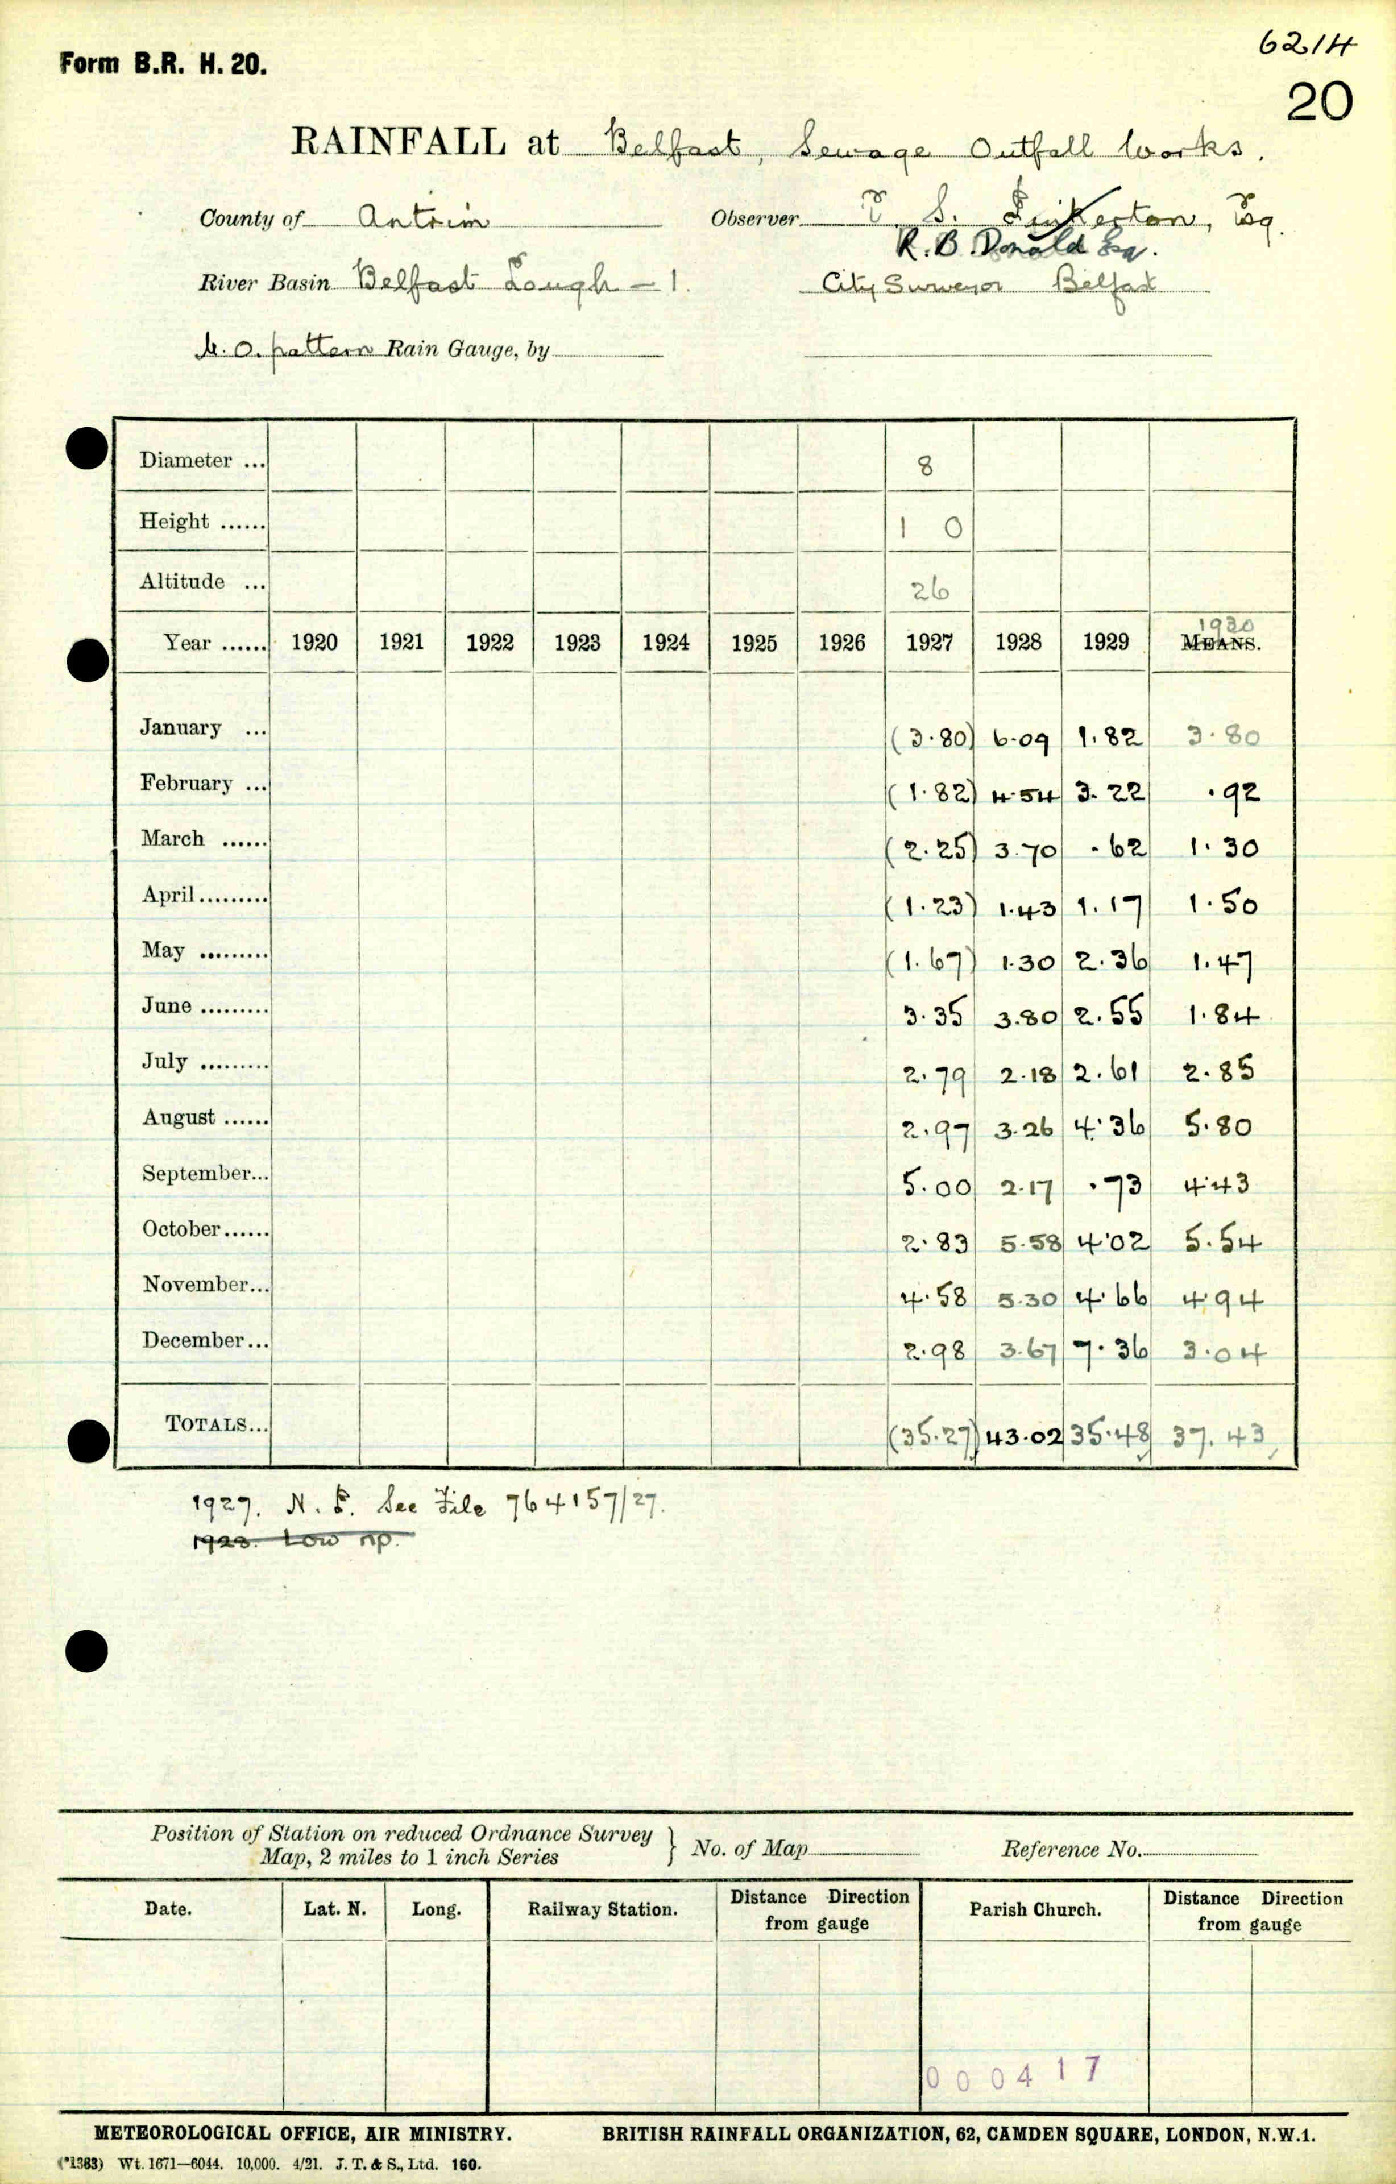 6214
Form B.R. H. 20.
20
RAINFALL at Belfast, Sewage Outfall Works.
County of Antrim Observer T S. Pinkerton, Esq.
R. B. Donald Esq.
River Basin Belfast Lough - 1. City Surveyor Belfast
M.O. pattern Rain Gauge, by
Diameter ... 8
Height ...... 1 0
Altitude ... 26
1930
Year ...... 1920 1921 1922 1923 1924 1925 1926 1927 1928 1929 MEANS.
January ... (3.80) 6.09 1.82 3.80
February ... (1.82) 4.54 3.22 .92
March ...... (2.25) 3.70 .62 1.30
April ......... (1.23) 1.43 1.17 1.50
May ......... (1.67) 1.30 2.36 1.47
June ......... 3.35 3.80 2.55 1.84
July ......... 2.79 2.18 2.61 2.85
August ...... 2.97 3.26 4.36 5.80
September... 5.00 2.17 .73 4.43
October...... 2.83 5.58 4.02 5.54
November... 4.58 5.30 4.66 4.94
December... 2.98 3.67 7.36 3.04
TOTALS... (35.27) 43.02 35.48 37.43
1927. N. P. See File 764157/27.
1928. Low np.
Position of Station on reduced Ordnance Survey
Map, 2 miles to 1 inch Series } No. of Map Reference No.
Date. Lat. N. Long. Railway Station. Distance Direction from gauge Parish Church. Distance Direction from gauge
000417
METEOROLOGICAL OFFICE, AIR MINISTRY. BRITISH RAINFALL ORGANIZATION, 62, CAMDEN SQUARE, LONDON, N.W.1.
(*1383) Wt. 1671—6044. 10,000. 4/21. J. T. & S., Ltd. 160.